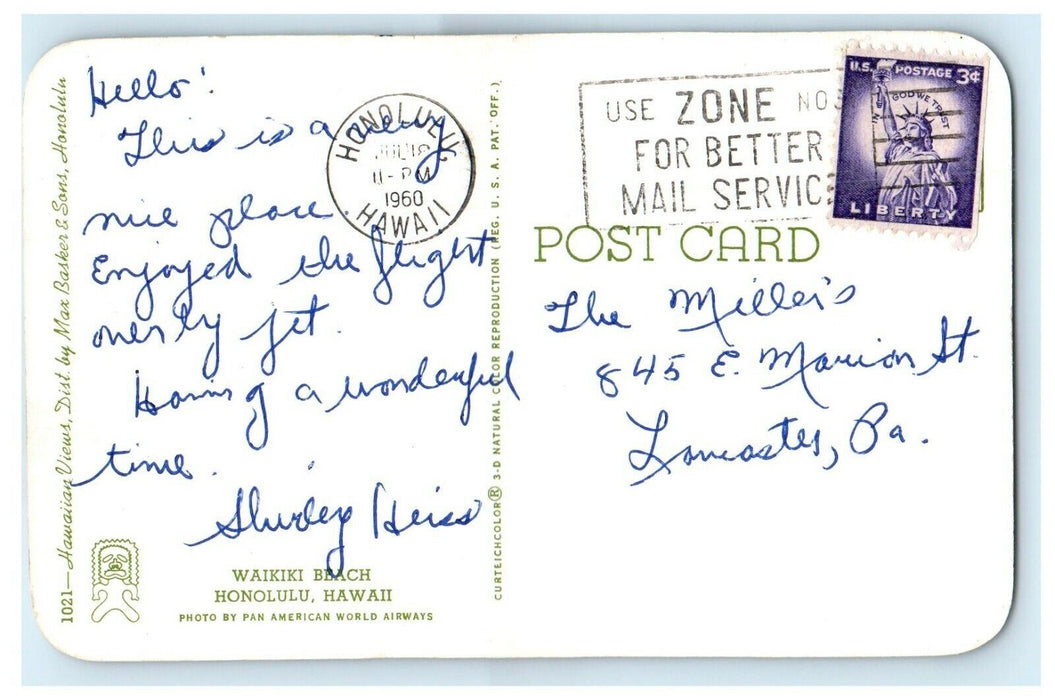 Hello!
This is a very
nice place.
Enjoyed the flight
over by jet.
Having a wonderful
time.
Shirley Heiss
WAIKIKI BEACH
HONOLULU, HAWAII
PHOTO BY PAN AMERICAN WORLD AIRWAYS
1021—Hawaiian Views, Dist. by Max Basker & Sons, Honolulu
HONOLULU
JUL 18
11-PM
1960
HAWAII
CURTEICHCOLOR® 3-D NATURAL COLOR REPRODUCTION (REG. U. S. A. PAT. OFF.)
USE ZONE NOS
FOR BETTER
MAIL SERVICE
U.S. POSTAGE 3¢
IN GOD WE TRUST
LIBERTY
POST CARD
The Miller's
845 E. Marion St.
Lancaster, Pa.